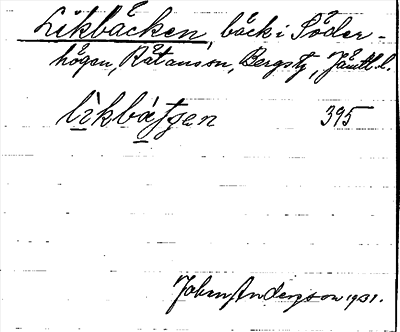 Likbäcken, bäck i Söder-
högen, Rätansson, Bergs tg, Jämtl. l.
lìkbátʃen 395
Johan Anderson 1931.